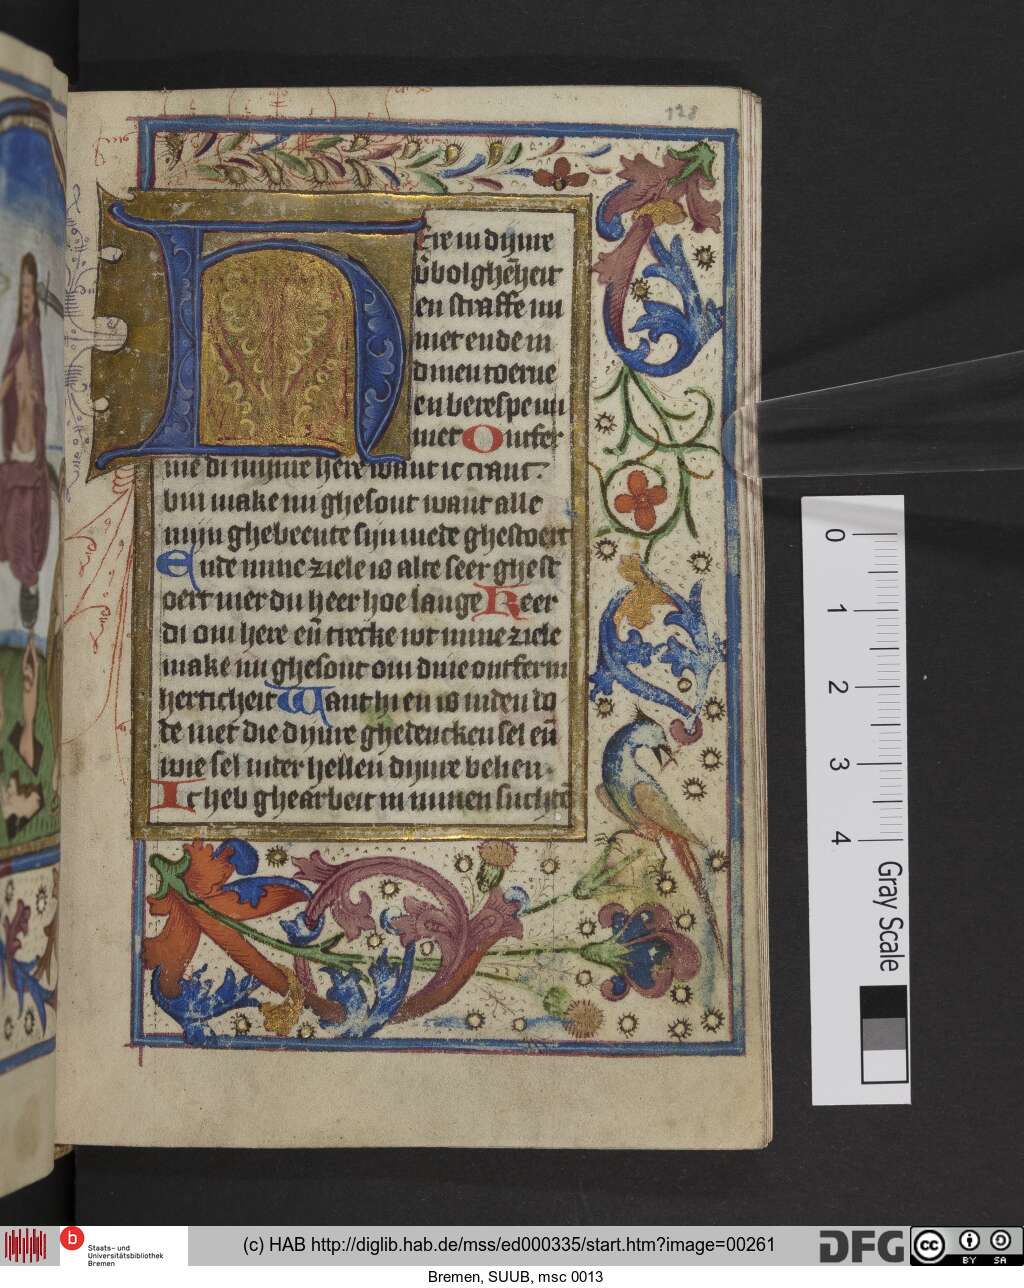 128
Here in dijnre
v̄bolghēheit
en straffe mi
niet ende in
dinen toerne
en berespe mi
niet Ontfer
me di mijnre here want ic cranc
bin make mi ghesont want alle
mijn ghebeente sijn mede ghestoert
Ende mine ziele is alte seer ghest
oert mer du heer hoe lange Keer
di om here eñ trecke wt mine ziele
make mi ghesont om dine ontferm
herticheit Want hi en is inden do
de niet die dijnre ghedencken sel eñ
wie sel inter hellen dijnre belien.
Ic heb ghearbeit in minen suchtē
0
1
2
3
4
Gray Scale
b
Staats- und
Universitätsbibliothek
Bremen
(c) HAB http://diglib.hab.de/mss/ed000335/start.htm?image=00261
DFG
cc
BY SA
Bremen, SUUB, msc 0013